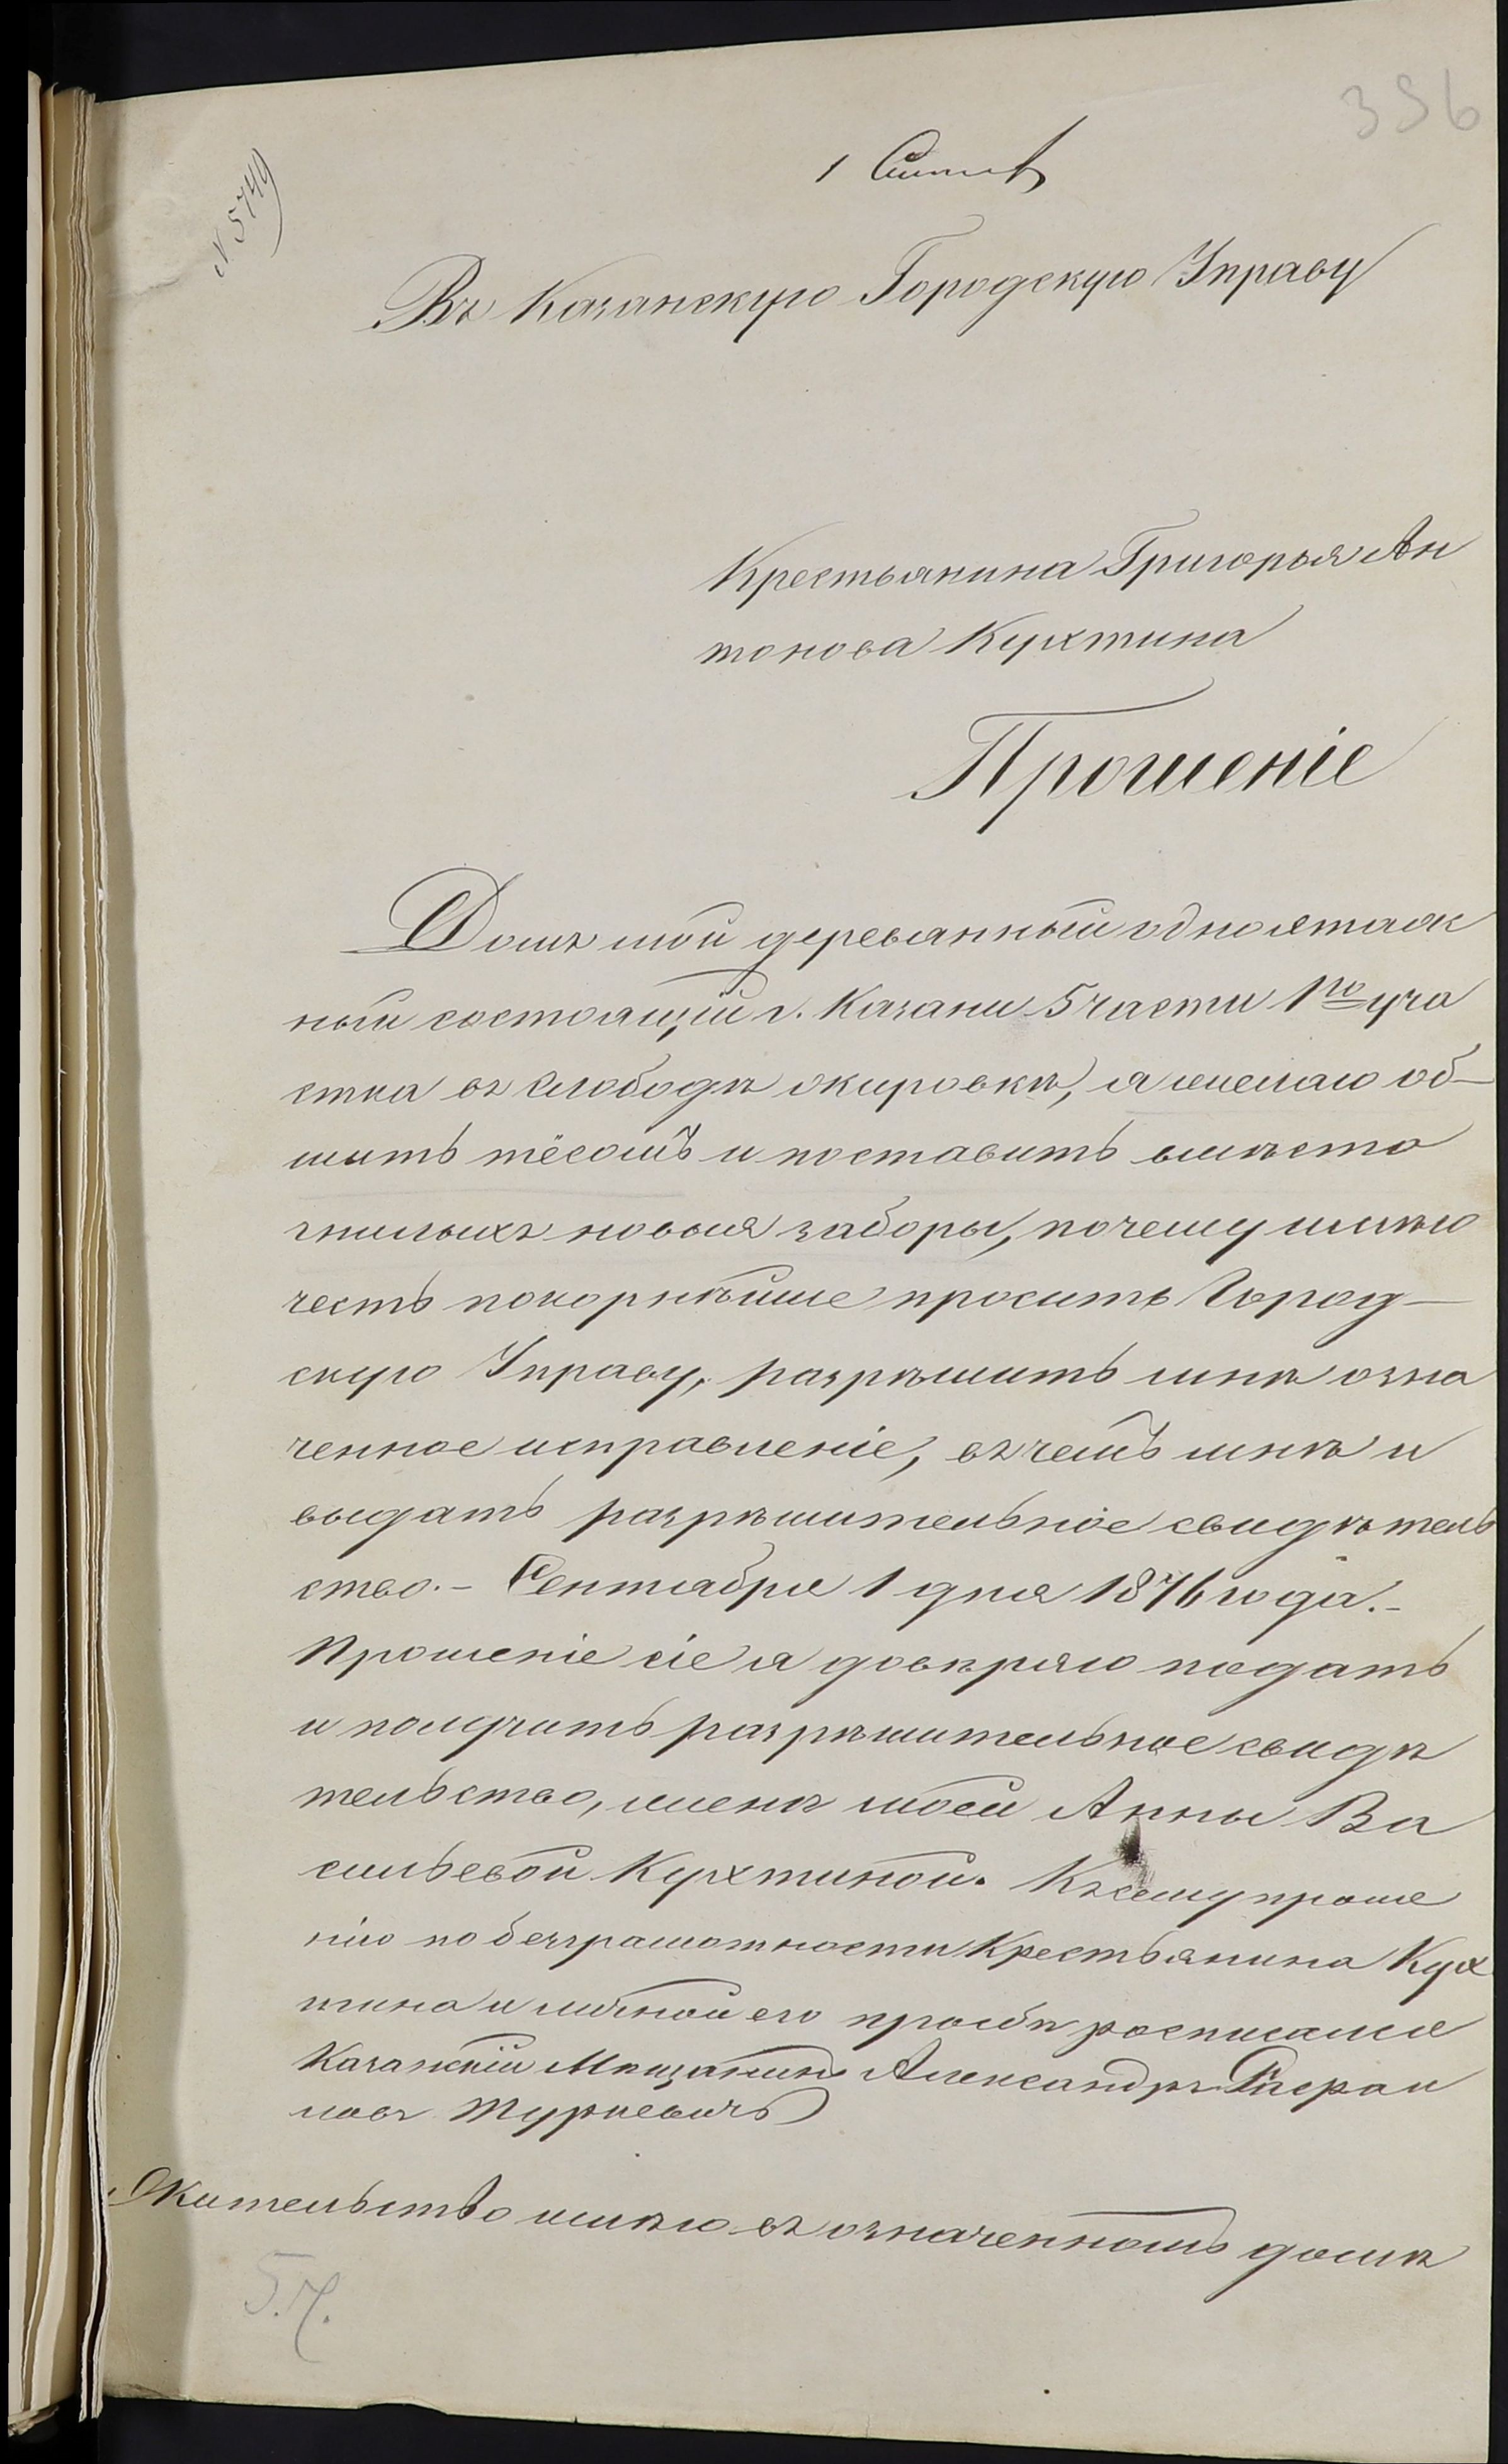 396
1 Сент
N 5749
Въ Казанскую Городскую Управу
Крестьянина Григорья Ан
тонова Кухтина
Прошеніе
Домъ мой деревянный одноэтаж
ный состоящій г. Казани 5 части 1го уча
стка въ Слободѣ Окировкѣ, я желаю об-
шить тёсомъ и поставить вместо
гнилыхъ новыя заборы, почему имѣю
честь покорнѣйше просить Город-
скую Управу, разрѣшить мнѣ озна
ченное исправленіе, въ чемъ мнѣ и
выдать разрѣшительное свидѣтель
ство.- Сентября 1 дня 1876 года.-
Прошеніе сіе я довѣряю подать
и получить разрѣшительное свидѣ
тельство, женѣ моей Анны Ва
сильевой Кухтиной. Къ сему проше
нію по безграмотности Крестьянина Кух
тина и личной его прозбѣ росписался
Казанскій Мѣщанинъ Александръ
новъ Туркевичъ
Жительство имѣю въ означенномъ домѣ
5.ч.